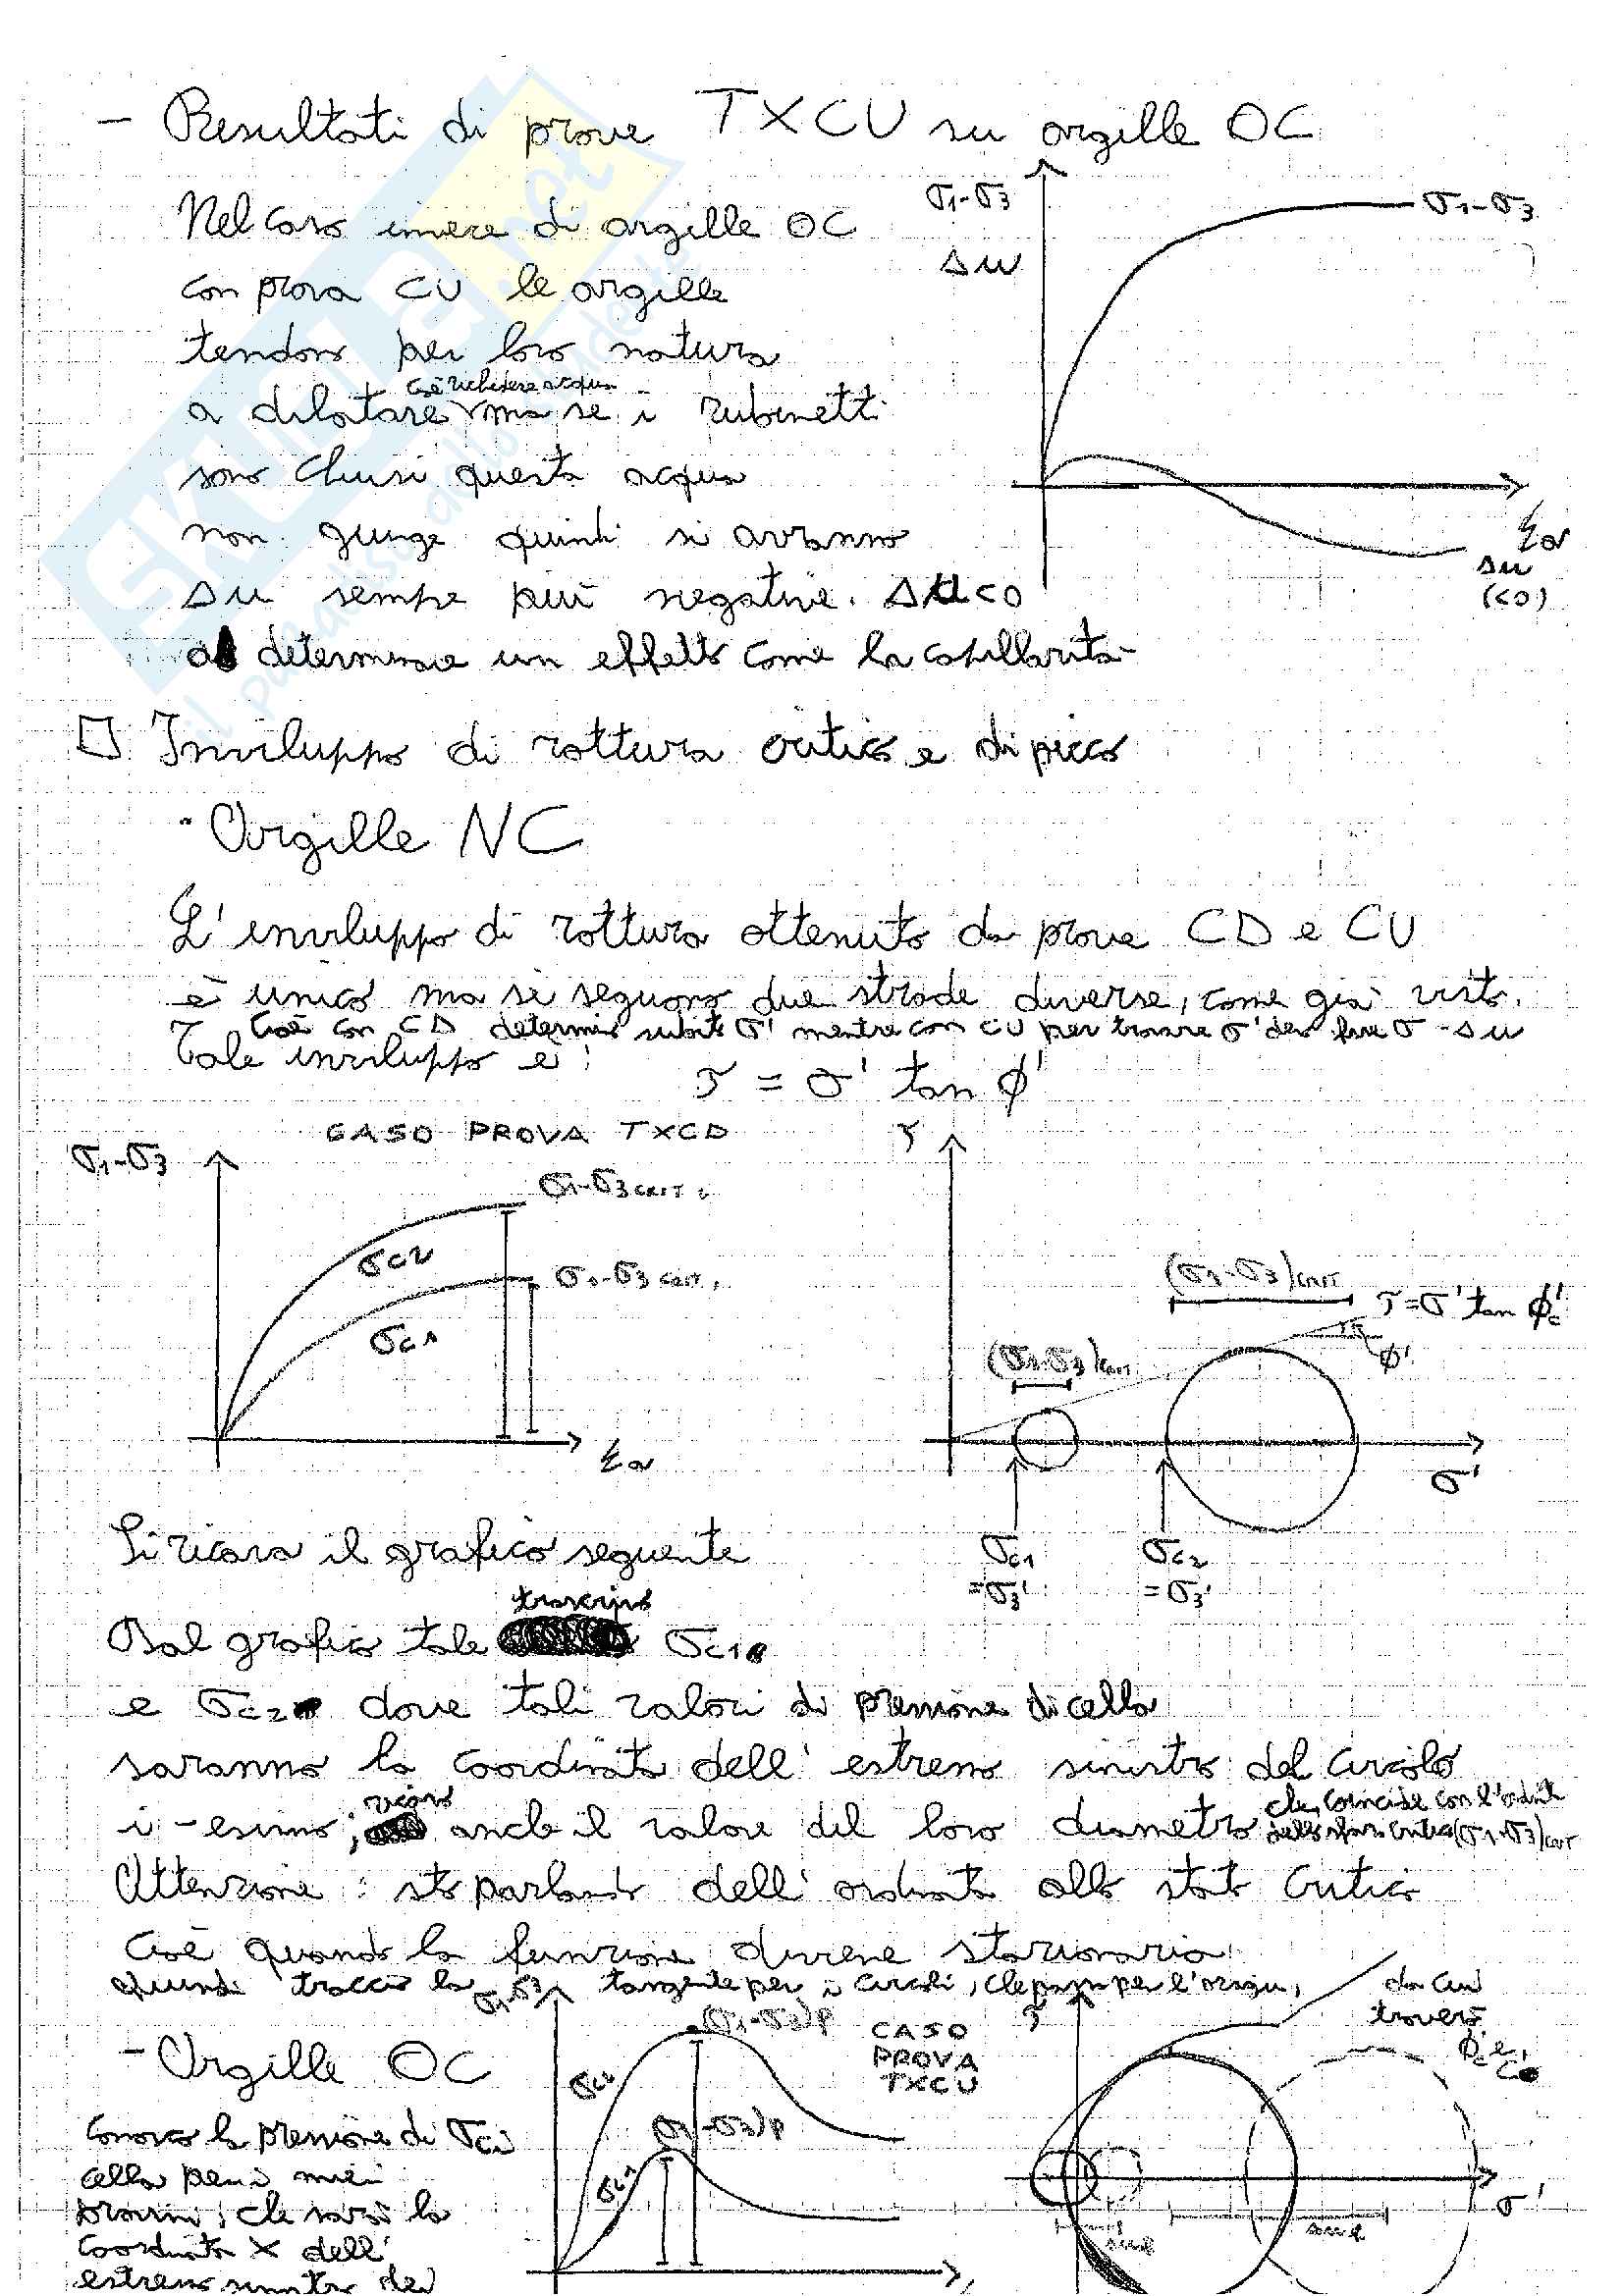 - Resultati di prove TXCU su argille OC
Nel caso invece di argille OC
con prova CU le argille
tendono per loro natura
cioè richidere acqua
a dilatare ma se i rubinetti
sono chiusi questa acqua
non giunge quindi si avranno
Δu sempre più negative. Δu<0
a determinare un effetto come la capillarità
σ1-σ3
Δu
σ1-σ3
εa
Δu
(<0)
□ Inviluppo di rottura critico e di picco
· Argille NC
L'inviluppo di rottura ottenuto da prove CD e CU
è unico ma si seguono due strade diverse, come già visto.
Cioè con CD determino subito σ' mentre con CU per trovare σ' devo fare σ-Δu
Tale inviluppo è:
τ = σ' tan φ'
CASO PROVA TXCD
σ1-σ3
σ1-σ3 CRIT.
σc2
σ1-σ3 CRIT.
σc1
εa
τ
(σ1-σ3)CRIT
τ=σ' tan φ'c
(σ1-σ3)CRIT
φ'
σ'
σc1
=σ3'
σc2
=σ3'
Si ricava il grafico seguente
trascrivo
Dal grafico tale σc1
e σc2 dove tali valori di pressione di cella
saranno la coordinata dell'estremo sinistro del circolo
ricavo
che coincide con l'ordinata
i-esimo; anche il valore del loro diametro
(σ1-σ3)CRIT
Attenzione: sto parlando dell'ordinata allo stato critico
cioè quando la funzione diviene stazionaria
quindi traccio la tangente per i circoli, che passa per l'origine,
- Argille OC
conosco la pressione di σci
cella per i miei
provini; che sarà la
coordinata x dell'
estremo sinistro dei
σ1-σ3
(σ1-σ3)p
σc2
(σ1-σ3)p
σc1
CASO
PROVA
TXCU
τ
da cui
troverò
φ'c e
σ'